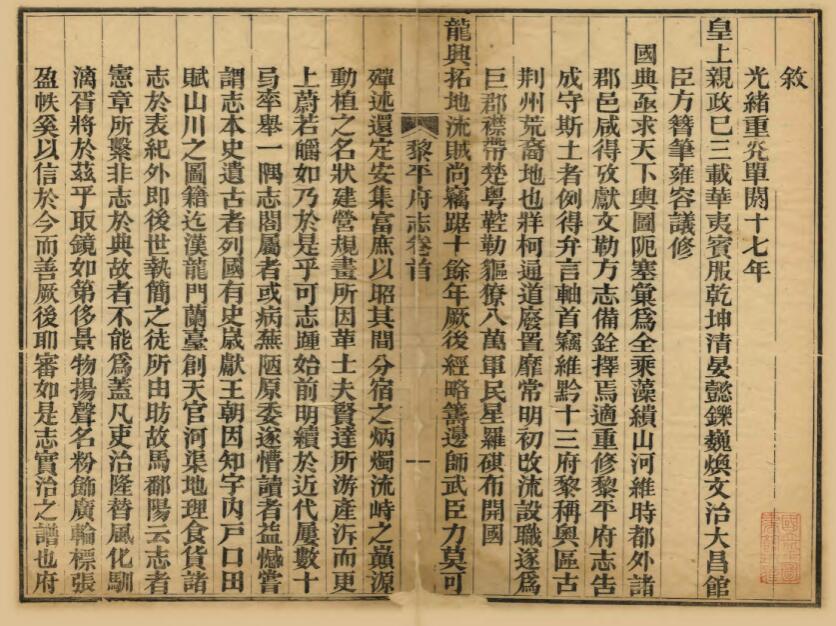 敘
光緒重光單閼十七年
皇上親政巳三載華夷賓服乾坤清晏懿鑠巍煥文治大昌館
臣方簪筆雍容議修
國典亟求天下輿圖阨塞彙爲全乘藻繢山河維時都外諸
郡邑咸得攷獻文勒方志備銓擇焉適重修黎平府志告
成守斯土者例得弁言軸首竊維黔十三府黎稱輿區古
荆州荒裔地也牂柯通道廢置靡常明初改流設職遂爲
巨郡襟帶楚粤鞚勒貙獠八萬軍民星羅碁布開國
龍興拓地流賊尚竊踞十餘年厥後經略籌邊師武臣力莫可
黎平府志卷首
一
殫述還定安集富庶以昭其間分宿之炳燭流峙之巔源
動植之名狀建營規畫所因革士夫賢達所游產泝而更
上蔚若皭如乃於是乎可志踵始前明續於近代屢數十
易率舉一隅志閣屬者或病蕪陋原委遂懵讀者益憾嘗
謂志本史遺古者列國有史歲獻王朝因知宇内戶口田
賦山川之圖籍迄漢龍門蘭臺創天官河渠地理食貨諸
志於表紀外卽後世執簡之徒所由昉故馬鄱陽云志者
憲章所繫非志於典故者不能爲蓋凡吏治隆替風化馴
漓胥將於茲乎取鏡如第侈景物揚聲名粉飾廣輪標張
盈帙奚以信於今而善厥後耶審如是志實治之譜也府